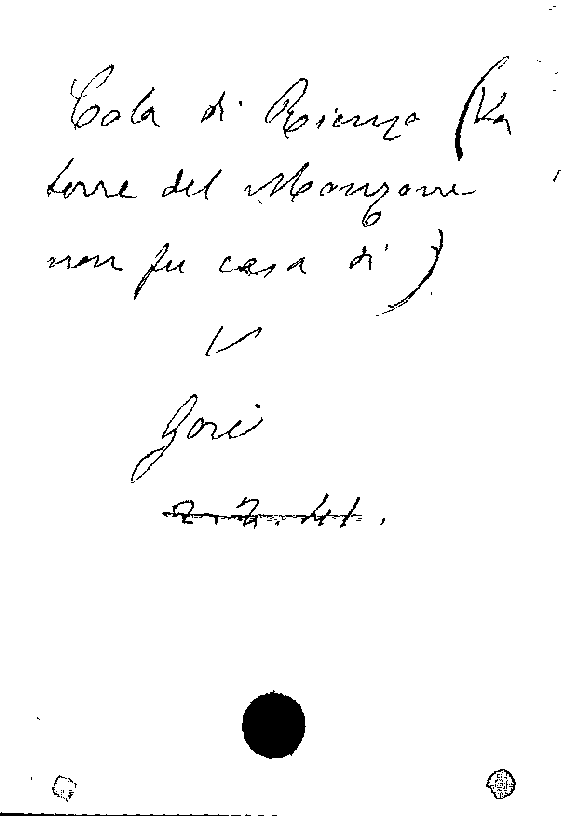 Cola di Rienzo (la
torre del Manzone
non fu casa di)
V
Gori
2.2.41.